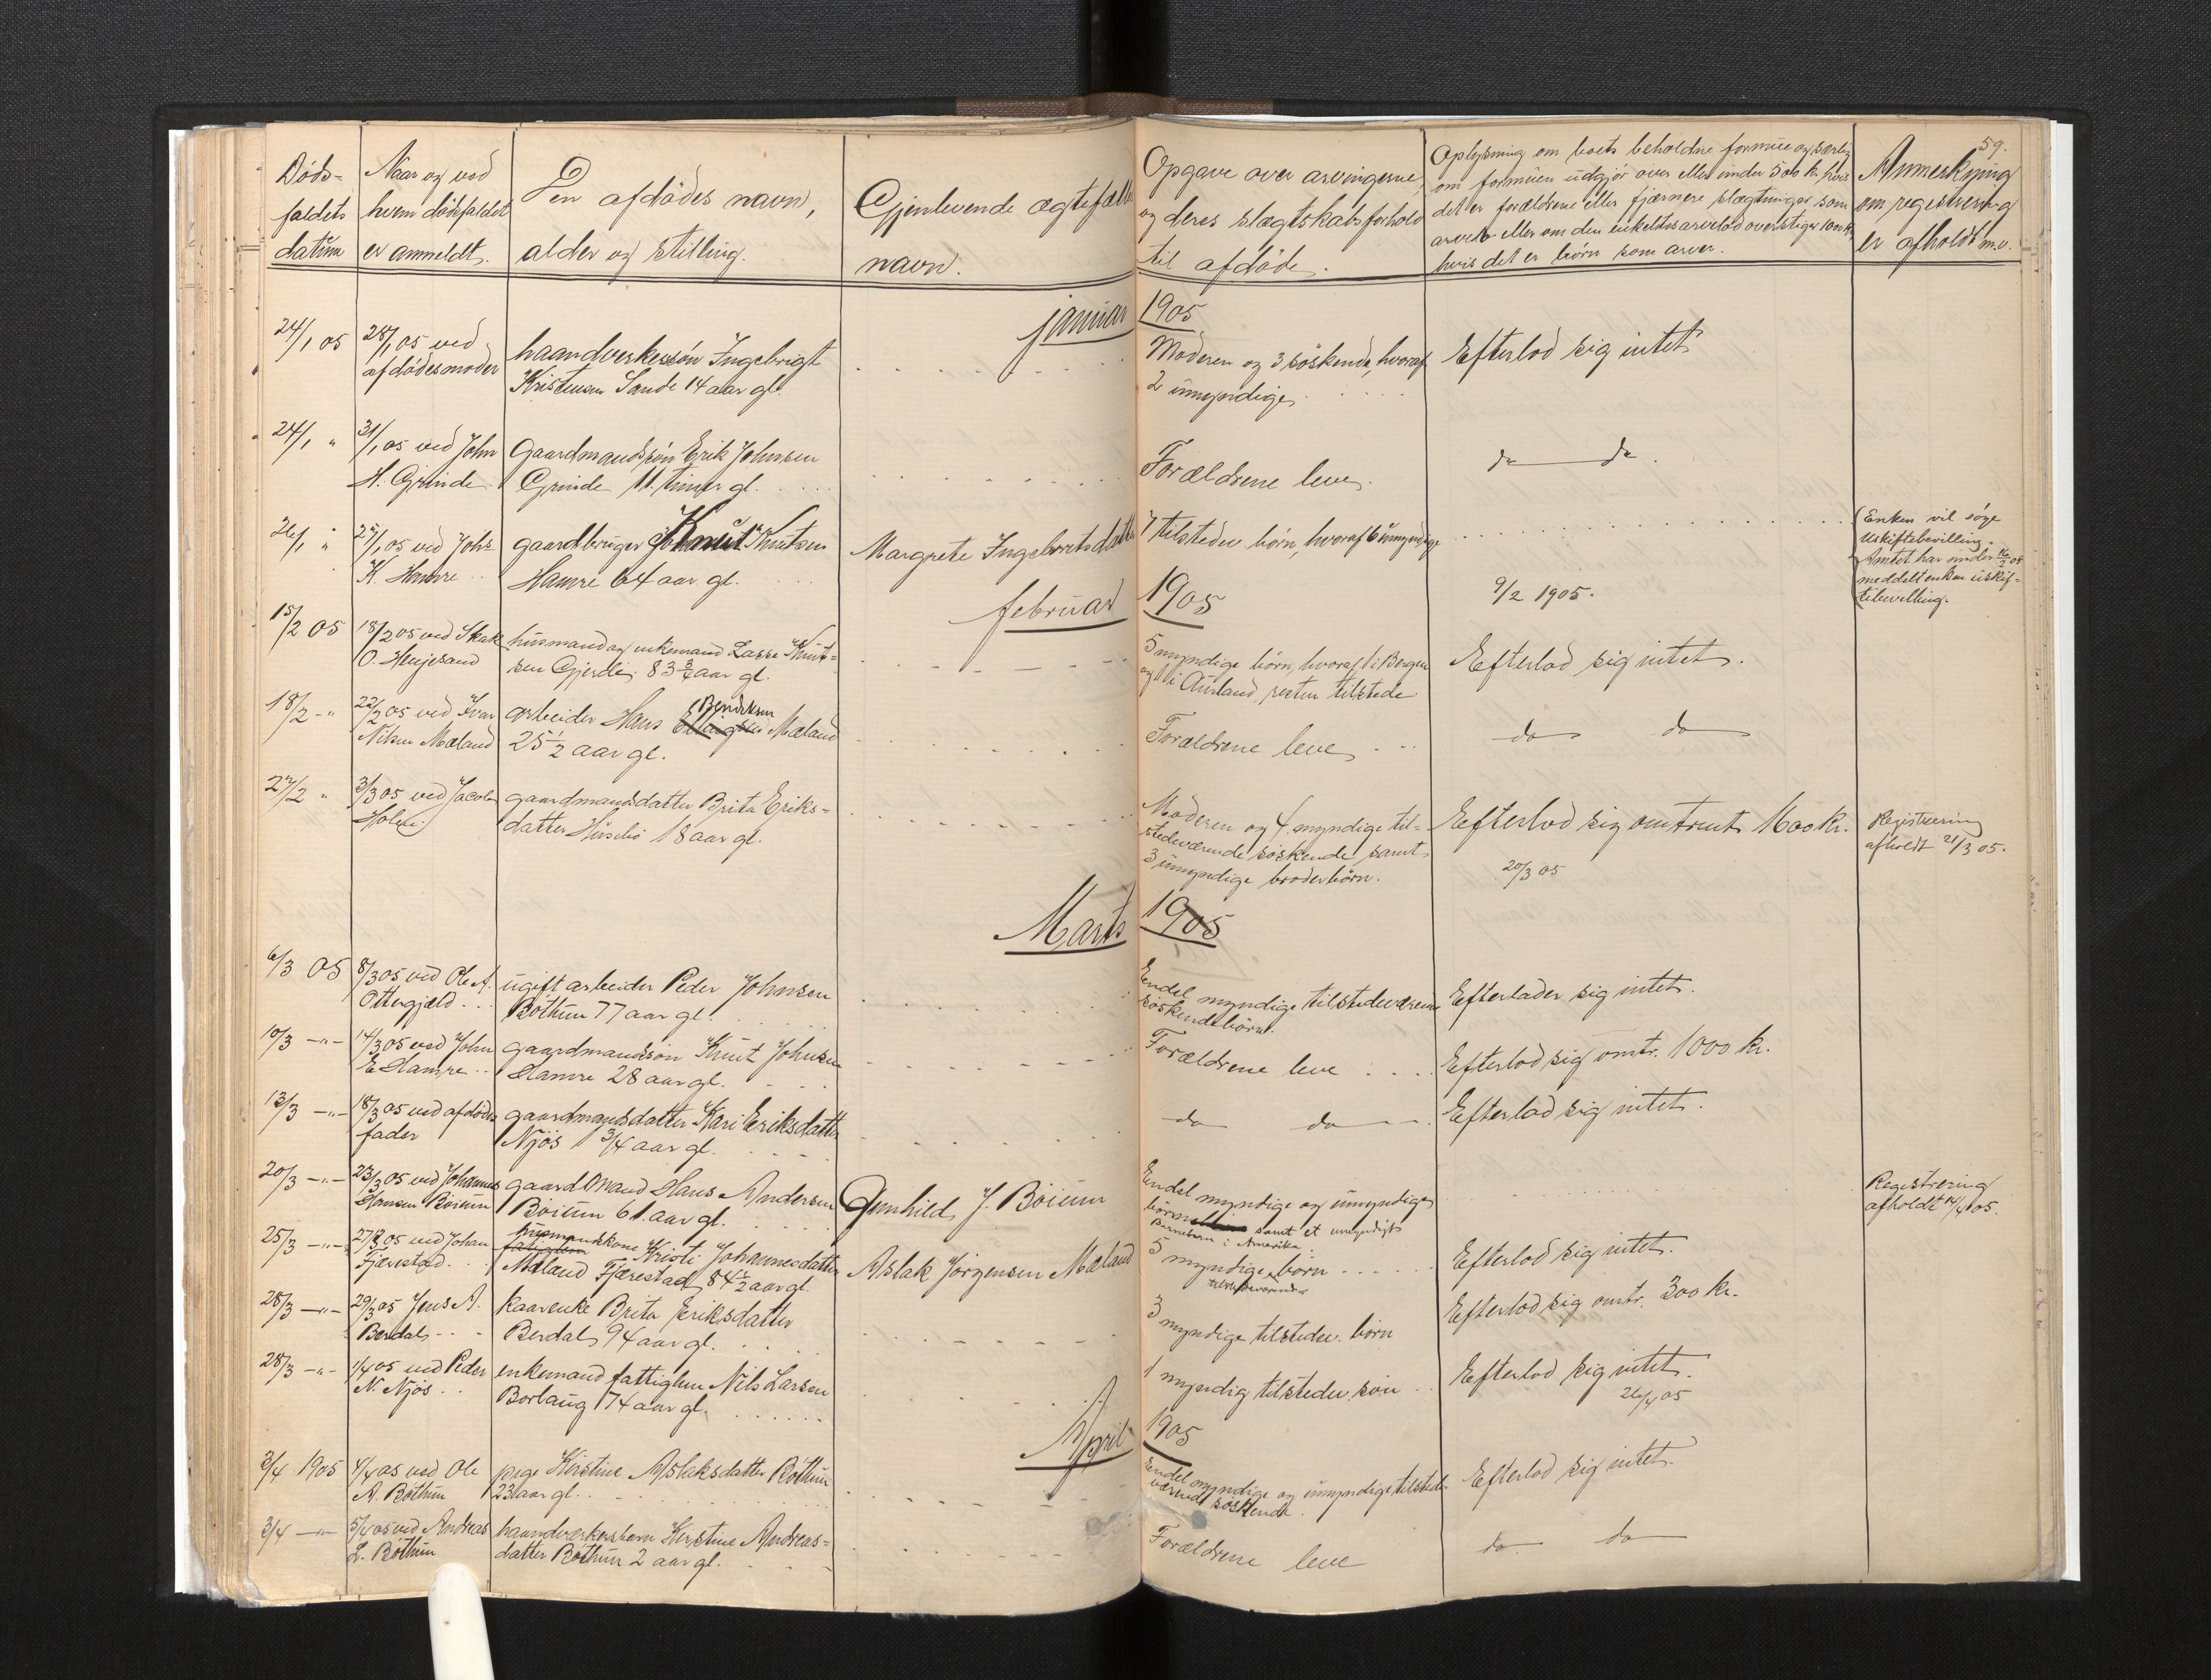 59.
Döds-
faldets
datum
Naar og ved
hvem dödsfaldet
er anmeldt.
Den afdödes navn,
alder og stilling.
Gjenlevende ægtefælles
navn.
Opgave over arvingerne,
og deres slægtskabsforhold
til afdöde.
Oplysning om boets beholdne formue og særlig
om formuen udgjör over eller under 500 kr. hvis
det er forældrene eller fjærnere slægtninger som
arver eller om den enkeltes arvelod overstiger 100 kr.
hvis det er börn som arver.
Anmerkning
om registrering
er afholdt m.v.
januar 1905
24/1 05
28/1 05 ved
afdödes moder
haandverkersön Ingebrigt
Kristensen Sande 14 aar gl.
Moderen og 3 söskende, hvoraf
2 umyndige
Efterlod sig intet
24/1 "
31/1 05 ved John
H. Grinde
Gaardmandssön Erik Johnsen
Grinde 11. timer gl.
Forældrene leve.
do do.
26/1 "
27/1 05 ved Johs
K. Hamre
gaardbruger Knut Knutsen
Hamre 64 aar gl.
Margrete Ingebretsdatter
7 tilstedev börn, hvoraf 6 umyndige
9/2 1905.
Enken vil söge
Uskiftebevilling.
Amtet har under 16/2 05
meddelt enken uskif-
tebevilling.
februar 1905
15/2 05
18/2 05 ved Skak
O. Henjesand
husmand og enkemand Lasse Knut-
sen Gjerde 83 3/4 aar gl.
5 myndige börn, hvoraf 1 i Bergen
og 1 i Aurland, resten tilstede
Efterlod sig intet.
18/2 - "
22/2 05 ved Ivar
Nilsen Mæland
Bendiksen
arbeider Hans Mæland
25 1/2 aar gl.
Forældrene leve
do do
27/2 "
3/3 05 ved Jacob
Holen
gaardmandsdatter Brita Eriks-
datter Husebö 18 aar gl.
Moderen og 4 myndige til-
stedeværende söskende samt
3 umyndige broderbörn.
Efterlod sig omtrent 1600 kr.
20/3 05
Registrering
afholdt 21/3 05.
Marts 1905
6/3 05
8/3 05 ved Ole A.
Ottergjæld
ugift arbeider Peder Johnsen
Böthun 77 aar gl.
Endel myndige tilstedeværende
söskendebörn.
Efterlader sig intet.
10/3 - " -
14/3 05 ved John
E Hamre
gaardmandssön Knut Johnsen
Hamre 28 aar gl.
Forældrene leve
Efterlod sig omtr. 1000 kr.
13/3 - " -
18/3 05 ved afdödes
fader
gaardmandsdatter Kari Eriksdatter
Njös 1 3/4 aar gl.
do do
Efterlod sig intet.
20/3 - " -
23/3 05 ved Johannes
Hansen Böium
gaardmand Hans Andersen
Böium 61. aar gl.
Gunhild J. Böium
Endel myndige og umyndige
börn samt et umyndigt
Barnebarn i Amerika
Registrering
afholdt 14/4 05.
25/3 - " -
27/3 05 ved Johan
Fjærestad
husmandskone
fattiglem Kristi Johannesdatter
Mæland Fjærestad 84 1/2 aar gl.
Aslak Jörgensen Mæland
5 myndige börn
tilstedeværende
Efterlod sig intet.
28/3 - " -
29/3 05 Jens A.
Berdal
kaarenke Brita Eriksdatter
Berdal 94 aar gl.
3 myndige tilstedev. börn
Efterlod sig omtr. 300 kr.
28/3 - " -
1/4 05 ved Peder
N. Njös
enkemand fattiglem Nils Larsen
Borlaug 74 aar gl.
1 myndig tilstedev. sön
Efterlod sig intet.
26/4 05
April 1905
2/4 1905
4/4 05 ved Ole
A. Böthun
pige Kirstine Aslaksdatter Böthun
23 aar gl.
Endel myndige og umyndige tilstede-
værende söskende.
Efterlod sig intet.
3/4 - " -
5/4 05 ved Andreas
L. Böthun
haandværkersbarn Kirstine Andreas-
datter Böthun 2 aar gl.
Forældrene leve
do do